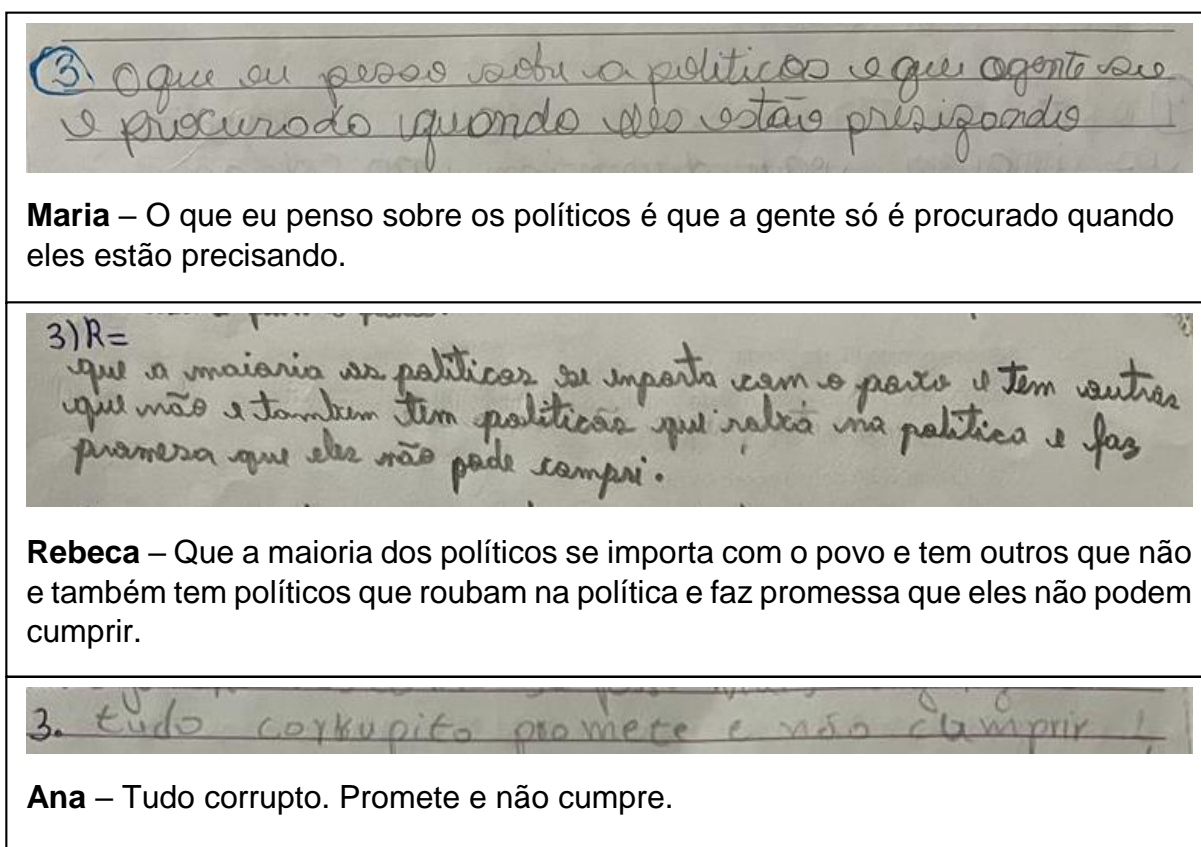 3. O que eu pesso sobre a politicos e que agente so
e procurado quando eles estão presizando
Maria – O que eu penso sobre os políticos é que a gente só é procurado quando
eles estão precisando.
3) R=
que a maioria os politicos se importa com o povo e tem outros
que não e tambem tem politicos que na politica e faz
promesa que eles não pode compri.
Rebeca – Que a maioria dos políticos se importa com o povo e tem outros que não
e também tem políticos que roubam na política e faz promessa que eles não podem
cumprir.
3. tudo corrupito promete e não cumprir !
Ana – Tudo corrupto. Promete e não cumpre.